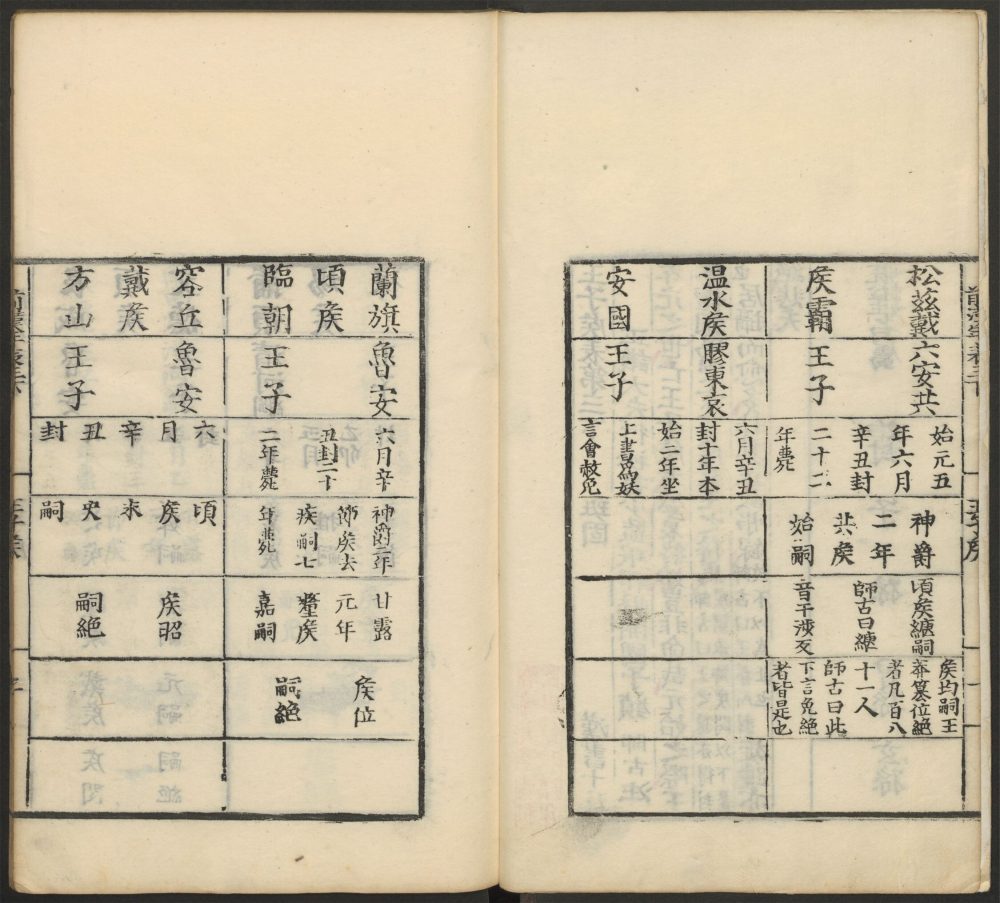 松茲戴
矦霸
六安共
王子
始元五
年六月
辛丑封
二十二
年薨
神爵
二年
共矦
始嗣
頃矦纏嗣
師古曰纏
音干涉反
矦均嗣王
莽篡位絕
者凡百八
十一人
師古曰此
下言免絕
者皆是也
温水矦
安國
膠東哀
王子
六月辛丑
封十年本
始二年坐
上書爲妖
言會赦免
蘭旗
頃矦
臨朝
魯安
王子
六月辛
丑封二十
二年薨
神爵二年
節矦去
疾嗣七
年薨
甘露
元年
釐矦
嘉嗣
矦位
嗣絕
容丘
戴矦
方山
魯安
王子
六
月
辛
丑
封
頃
矦
未
央
嗣
矦昭
嗣絕